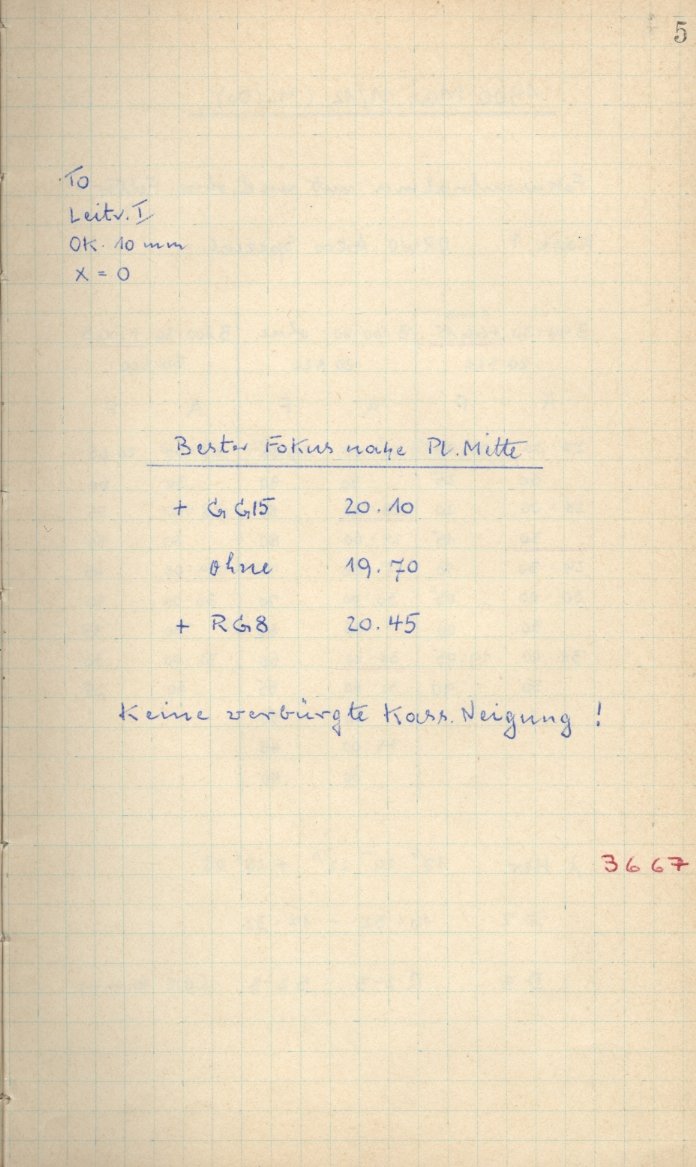 5
To
Leitr. I
OK. 10 mm
X = 0
Bester Fokus nahe Pl. Mitte
+ GG15 20.10
ohne 19.70
+ RG8 20.45
Keine verbürgte Kass. Neigung !
3667